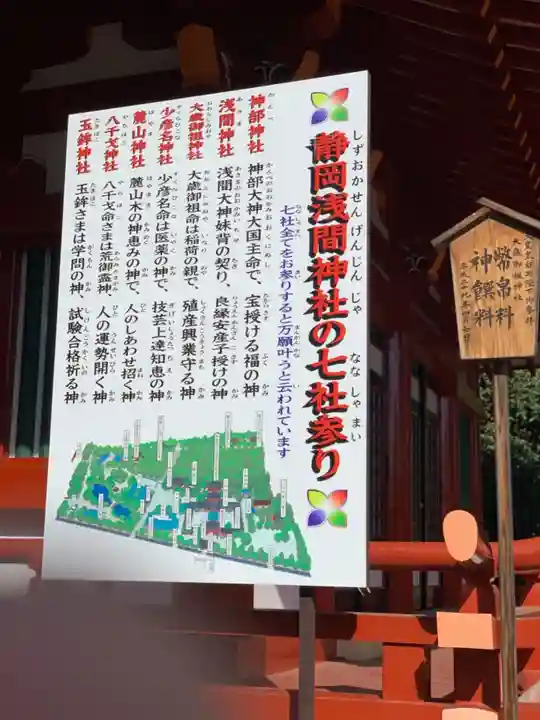 静岡浅間神社の七社参り
しずおかせんげんじんじゃ ななしゃまい
七社全てをお参りすると万願叶うと云われています
神部神社 神部大神大国主命で、宝授ける福の神
浅間神社 浅間大神妹背の契り、良縁安産子授けの神
大歳御祖神社 大歳御祖命は稲荷の親で、殖産興業守る神
少彦名神社 少彦名命は医薬の神で、技芸上達知恵の神
麓山神社 麓山木の神恵みの神で、人のしあわせ招く神
八千戈神社 八千戈命さまは荒御霊神、人の運勢開く神
玉鉾神社 玉鉾さまは学問の神、試験合格祈る神
大歳御祖神社
幣帛料
神饌料